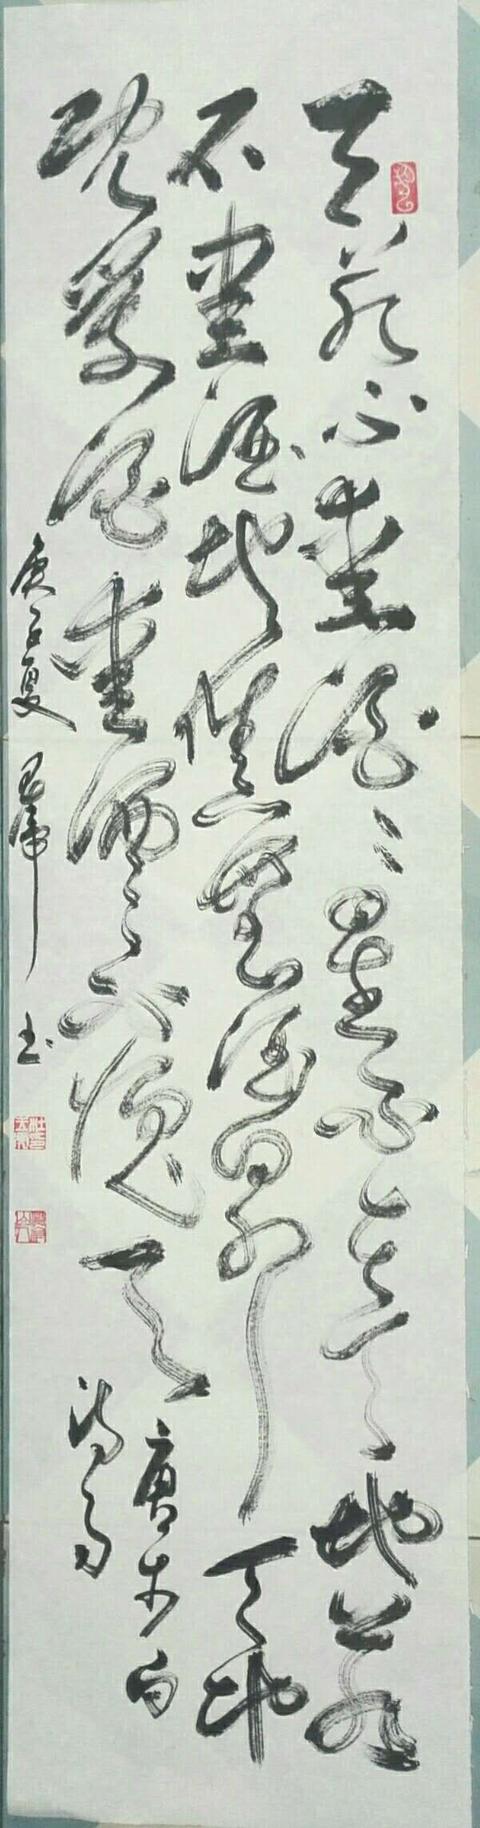 天若不愛酒〻星不在天地若
不愛酒地應無酒泉天地
既愛酒愛酒不愧天
唐李白
诗句
庚子夏 书